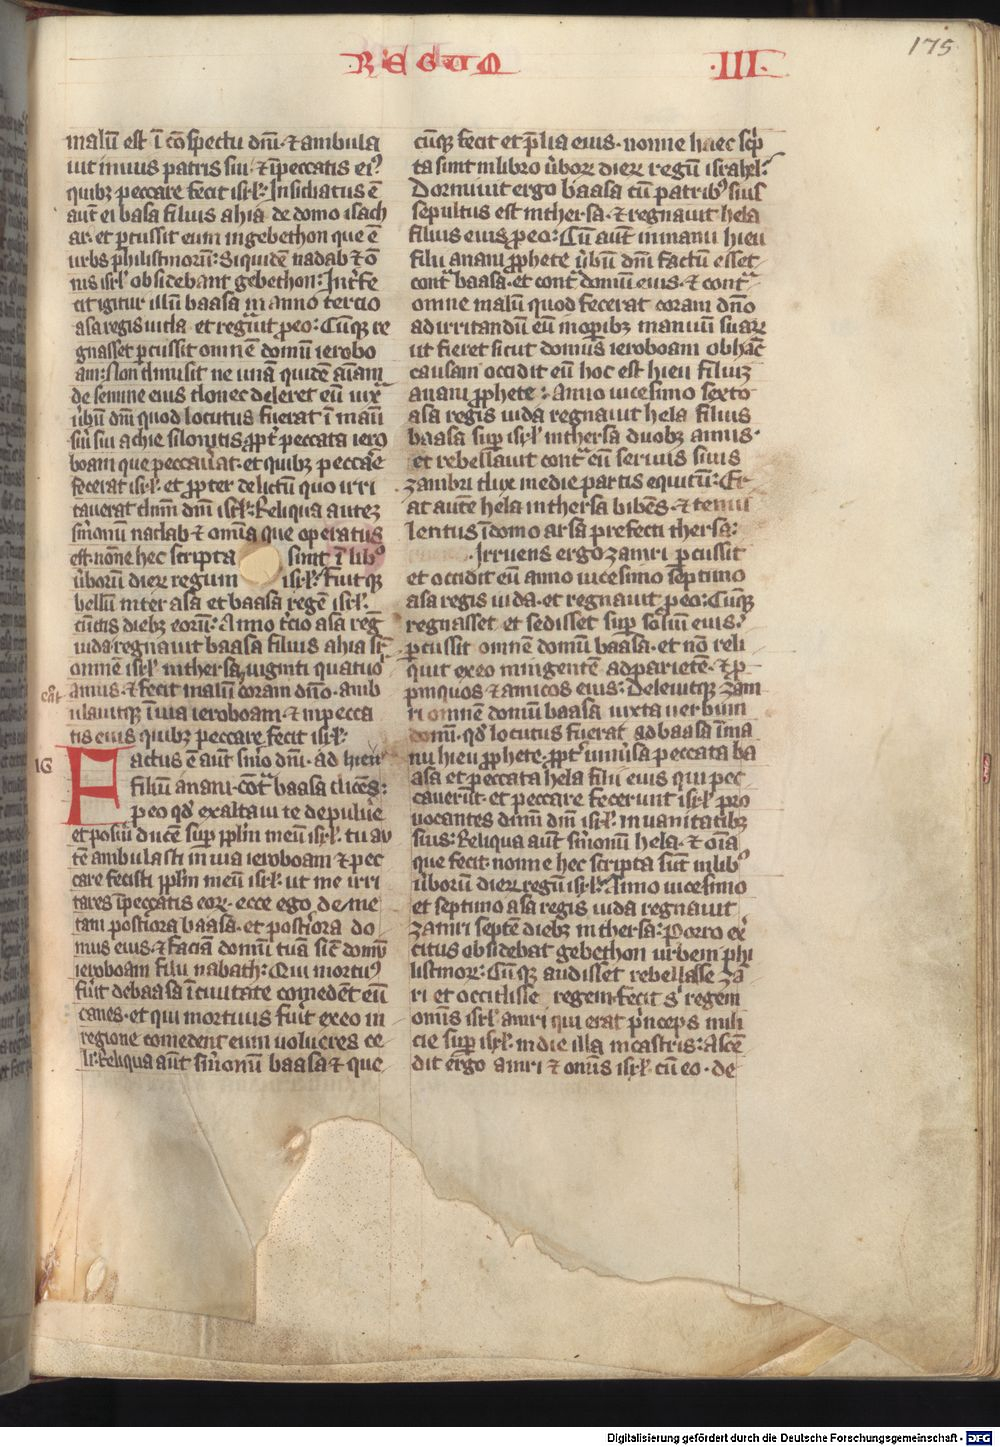 REGUM
·III·
175
malū est ī cōspectu dn̄i · ⁊ ambula
uit in uiis patris sui · ⁊ ī peccatis ei⁹
quibꝫ peccare fecit isrl̄ · Insidiatus ē
aut̄ ei basa filius ahia de domo isach
ar · et ꝑcussit eum in gebethon que ē
urbs philistinorum · Siquidem nadab ⁊ ō
nis isrl̄ obsidebant gebethon · Int̄fe
cit igitur illū baasa in anno tercio
asa regis iuda et regnauit ꝓ eo · Cūqꝫ re
gnasset ꝑcussit omnē domū ierobo
am · Non dimisit ne unā quidē aīam
de semine eius donec deleret eū iux̄
ūbū dn̄i quod locutus fuerat ī manu
sui sui achie silonitis ꝓpt̄ peccata iero
boam que peccau̇at · et quibꝫ peccar̄e
fecerat isrl̄ · et ꝓpter delictū quo irri
tauerat dnm̄ dm̄ isrl̄ · Reliqua auteꝫ
sm̄onū nadab ⁊ omīa que operatus
est · nōne hec scripta sunt ī lib⁰
ūborū dierꝝ regum isrl̄ · Fuitqꝫ
bellū inter asa et baasa regē isrl̄ ·
cūctis diebꝫ eorū · Anno t̄cio asa reḡ
iuda regnauit baasa filius ahia sr̄
omnē isrl̄ in thersa uiginti quatuor
annis · ⁊ fecit malū coram dn̄o · amb
ulauitqꝫ ī uia ieroboam · ⁊ in pecca
tis eius quibꝫ peccare fecit isrl̄ ·
IG
Factus ē aut̄ sm̄o dn̄i · ad hieu
filiū anani · cont̄ baasa dicēs ·
ꝓ eo qd̄ exaltaui te de puluē
et posui ducē suꝑ ppl̄m meū isrl̄ · tu au
tē ambulasti in uia ieroboam ⁊ pec
care fecisti ppl̄m meū isrl̄ · ut me irri
tares ī peccatis eorꝝ · ecce ego de me
tam post̄iora baasa · et post̄iora do
mus eius · ⁊ faciā domū tuā sic̄ domū
ieroboam filii nabath · Qui mortu⁹
fuit̄ de baasa ī ciuitate comedēt eū
canes · et qui mortuus fuit̄ ex eo in
regione comedent eum uolucres ce
li · Reliqua aut̄ sm̄onū baasa ⁊ que
cūqꝫ fecit et p̄lia eius · nonne haec scp̄
ta sunt in libro ūborꝝ dierꝝ regū israhel ·
Dormiuit ergo baasa cū patrib⁹ suis
sepultus est in thersa · ⁊ regnauit hela
filius eius ꝓ eo · Cū aut̄ in manu hieu
filii anani ꝓphete ūbū dn̄i factū esset
cont̄ baasa · et cont̄ domū eius · ⁊ cont̄
omne malū quod fecerat coram dn̄o
ad irritandū eū in oꝑibꝫ manuū suarꝝ
ut fieret sicut domus ieroboam ob hāc
causam occidit eū hoc est hieu filiuꝫ
anani ꝓphete · Anno uicesimo sexto
asa regis iuda regnauit hela filius
baasa suꝑ isrl̄ in thersa duobꝫ annis ·
et rebellauit cont̄ eū seruus suus
zambri dux medie partis equitū · Er
at autē hela in thersa bibēs · ⁊ temu
lentus ī domo arsa prefecti thersa ·
· Irruens ergo zamri ꝑcussit
et occidit eū anno uicesimo septimo
asa regis iuda · et regnauit ꝓ eo · Cūqꝫ
regnasset et sedisset suꝑ soliū eius ·
ꝑcussit omnē domū baasa · et nō reli
quit ex eo mingentē ad parietē · ⁊ ꝓ
pinquos ⁊ amicos eius · Deleuitqꝫ zam
ri omnē domū baasa iuxta uerbum
domī · qd̄ locutus fuerat ad baasa ī ma
nu hieu ꝓphete · ꝓpt̄ uniūsa peccata ba
asa et peccata hela filii eius qui pec
cauerūt · et peccare fecerunt isrl̄ pro
uocantes dnm̄ dm̄ isrl̄ · in uanitatibꝫ
suis · Reliqua aut̄ sm̄onū hela · ⁊ oīa
que fecit · nonne hec scripta sūt in lib⁰
ūborū dierꝝ regū isrl̄ · Anno uicesimo
et septimo asa regis iuda regnauit
zamri septē diebꝫ in thersa · Porro ex̄
citus obsidebat gebethon urbem phi
listinorꝝ · Cūqꝫ audisset rebellasse zā
ri et occidisse regem · fecit s̄ regem
omis isrl̄ amri qui erat p̄nceps mili
cie suꝑ isrl̄ · in die illa in castris · Ascē
dit ergo amri ⁊ omis isrl̄ cū eo · de
Digitalisierung gefördert durch die Deutsche Forschungsgemeinschaft - DFG